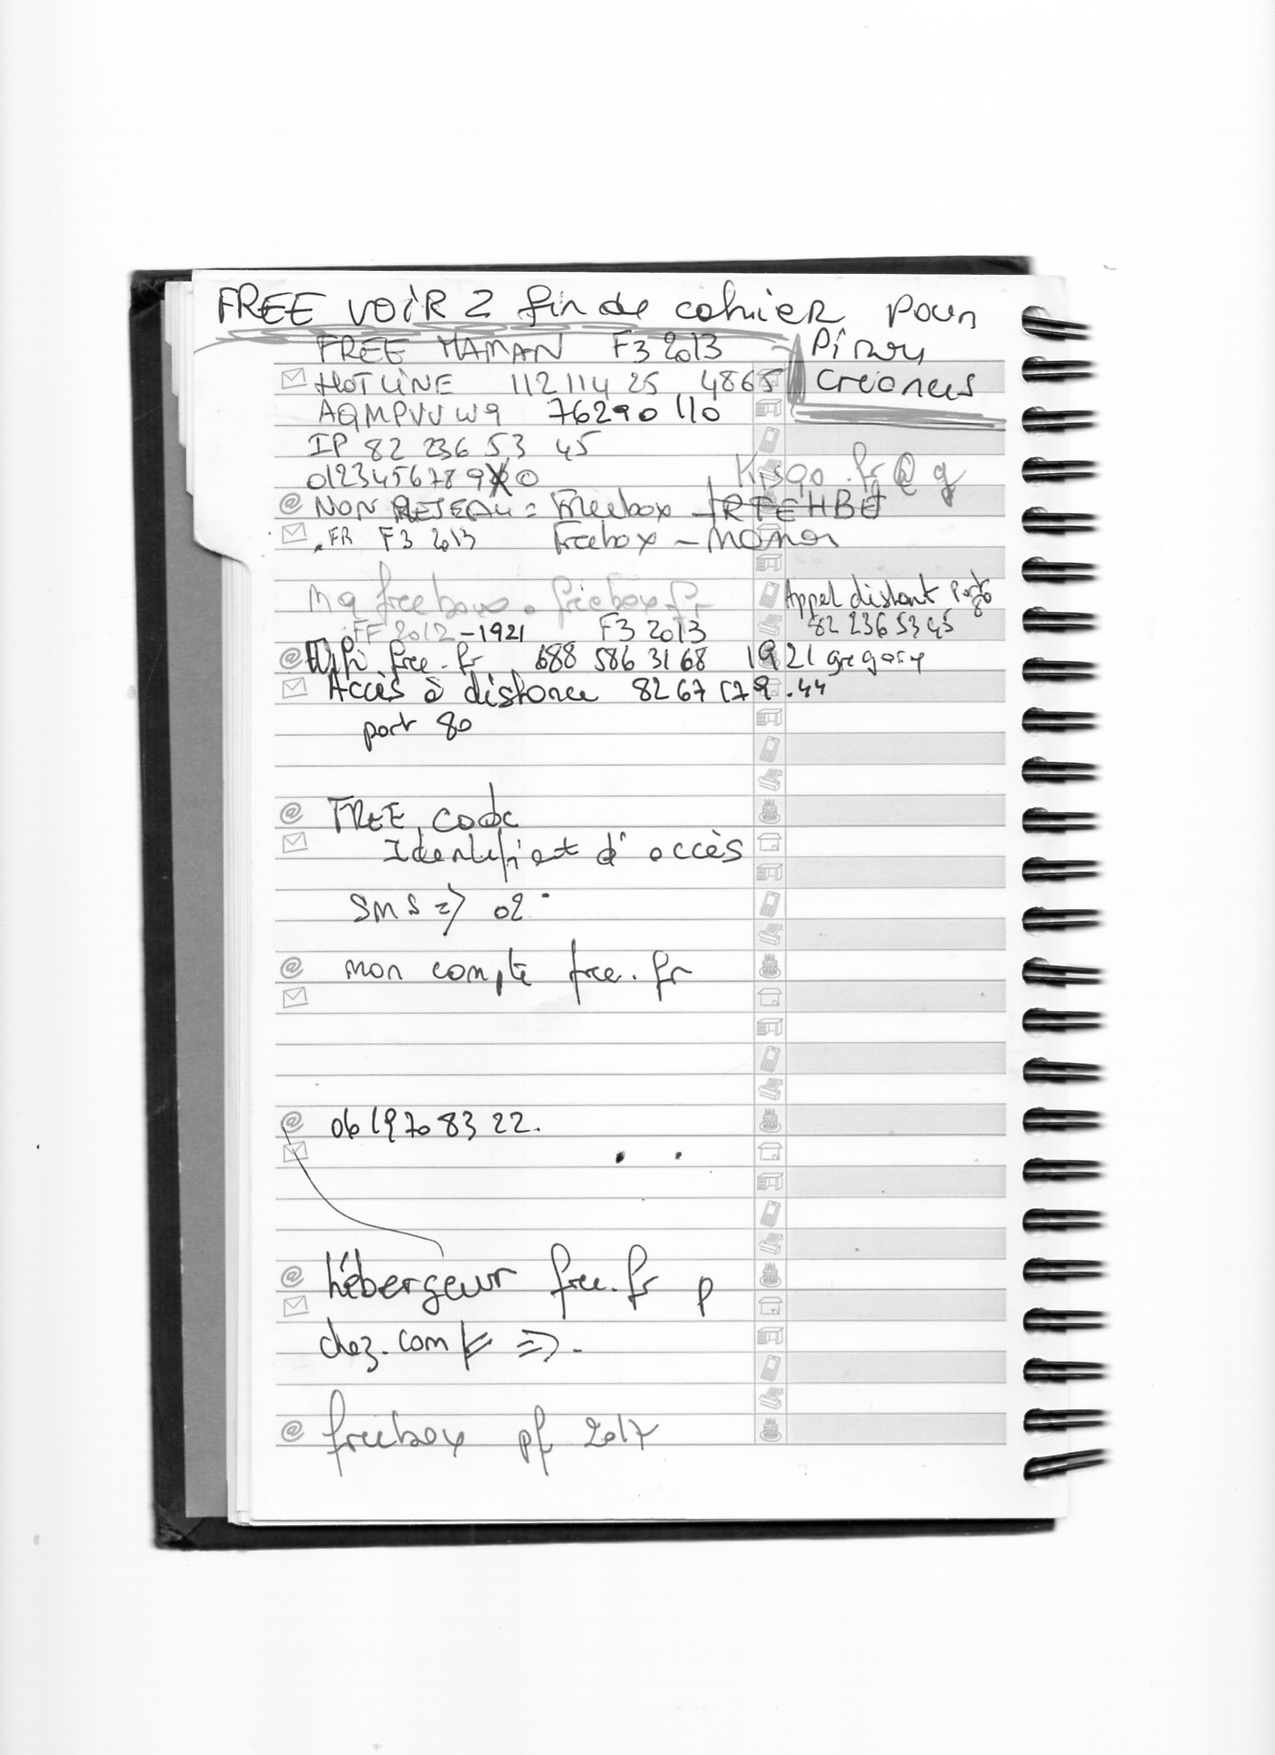 FREE VOIR 2 fin de cahier pour
FREE MAMAN F3 2013
HOTLINE 112 114 25 4865
AQMPVVW9 76290 110
IP 82 236 53 45
0123456789 0
NON RESEAU = Freebox
.FR F3 2013 Freebox - maman
freebox.fr
Appel distant Port 80
FF 2012-1921 F3 2013
82 236 53 45
Wifi free.fr 688 586 3168 1921 gregory
Accès à distance 82 67 179.44
port 80
FREE code
Identifiant d'accès
SMS => 02
mon compte free.fr
06 19 70 83 22.
hébergeur free.fr p
chez.com <= =>.
freebox pf 2017